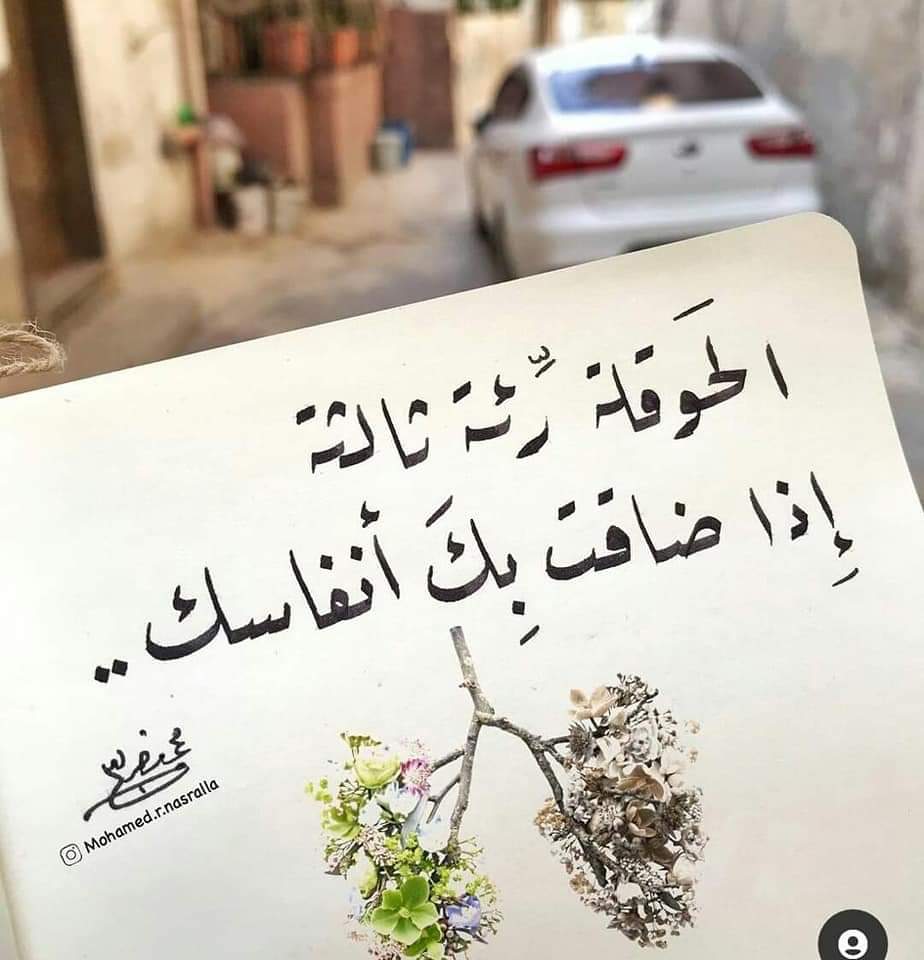 الحَوقلة رِّئة ثالثة
إِذا ضاقت بِكَ أنفاسك..
Mohamed.r.nasralla